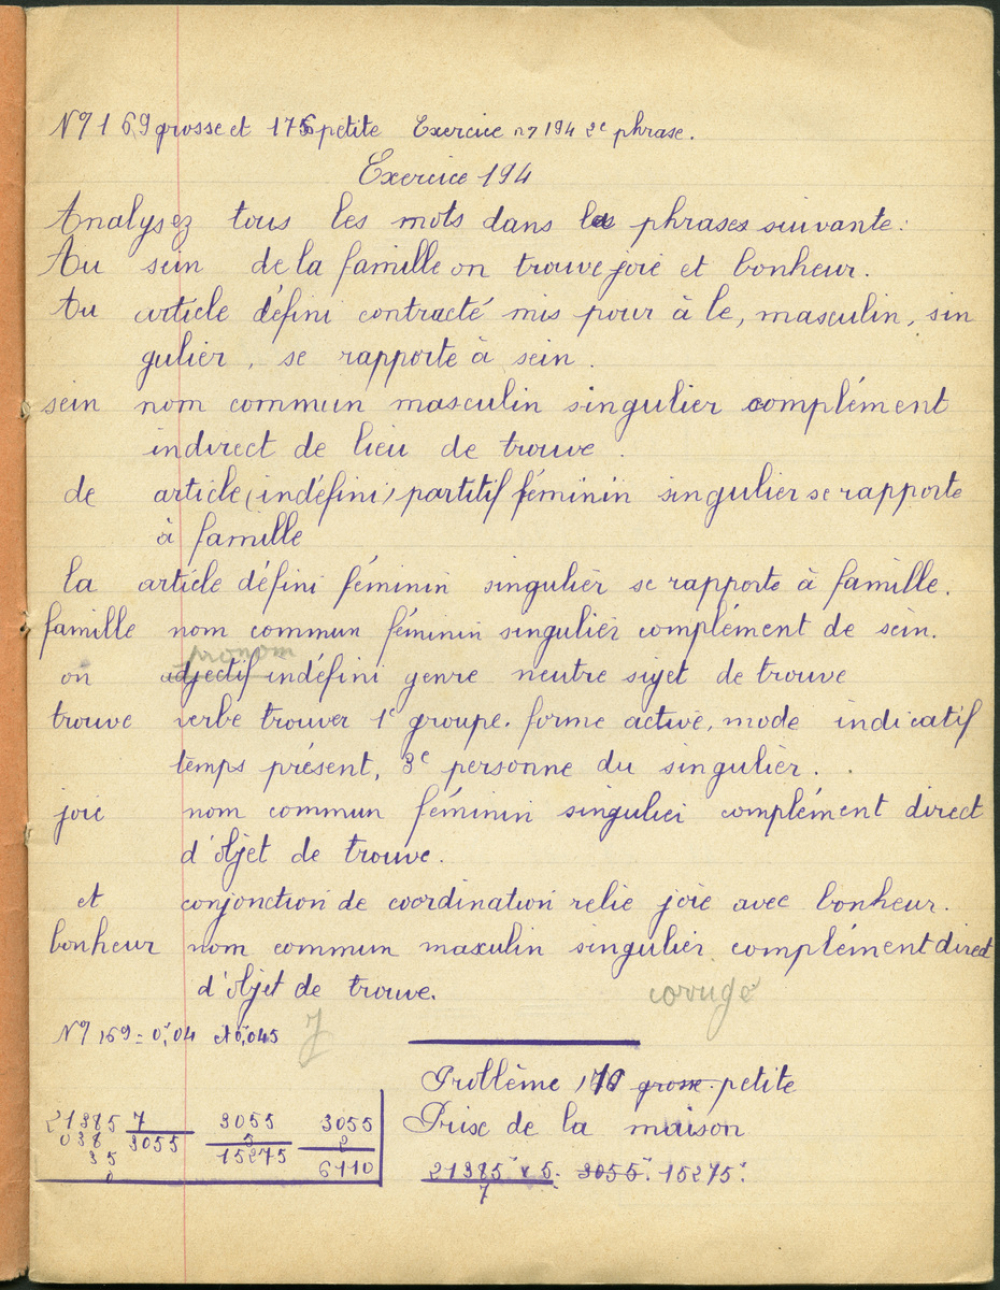 N° 169 grosse et 176 petite Exercice n° 194 2e phrase.
Exercice 194
Analysez tous les mots dans la phrases suivante:
Au sein de la famille on trouve joie et bonheur.
Au article défini contracté mis pour à le, masculin, sin
gulier, se rapporte à sein.
sein nom commun masculin singulier complément
indirect de lieu de trouve.
de article (indéfini) partitif féminin singulier se rapporte
à famille
la article défini féminin singulier se rapporte à famille.
famille nom commun féminin singulier complément de sein.
pronom
on adjectif indéfini genre neutre sujet de trouve
trouve verbe trouver 1e groupe. forme active, mode indicatif
temps présent, 3e personne du singulier.
joie nom commun féminin singulier complément direct
d'objet de trouve.
et conjonction de coordination relie joie avec bonheur.
bonheur nom commun masculin singulier complément direct
d'objet de trouve.
corrigé
N° 169 = 0,04 et 0,045
Problème 176 grosse petite
Prise de la maison
21385 7
038 3055
35
0
3055
5
15275
3055
2
6110
21385 x 5. 3055. 15275.
7